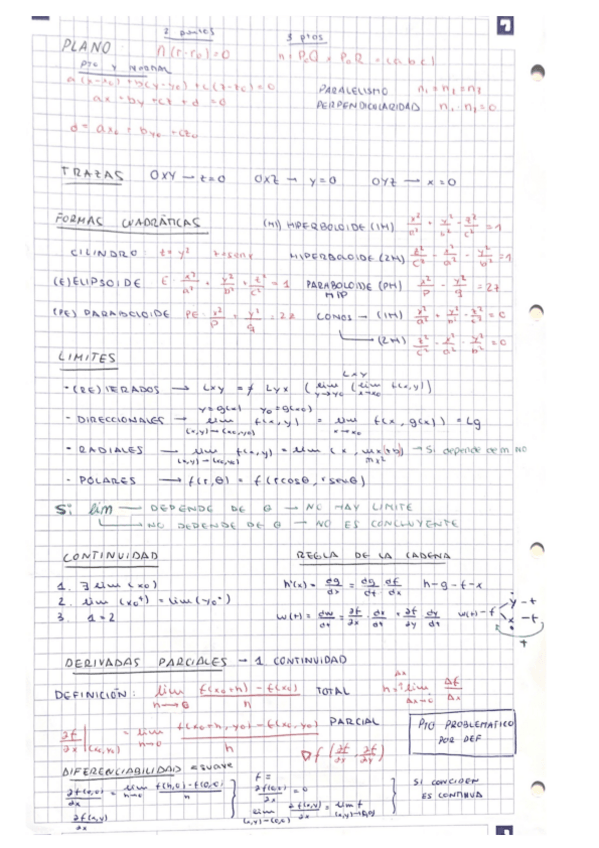 2 puntos 3 ptos
PLANO: n(r-r₀)=0 n = P₀Q × P₀R = (a b c)
PTO Y NORMAL
a(x-x₀)+b(y-y₀)+c(z-z₀)=0 PARALELISMO
ax+by+cz+d=0 PERPENDICULARIDAD n₁·n₁=0
d = ax₀ + by₀ + cz₀
TRAZAS OXY → z=0 OXZ → y=0 OYZ → x=0
FORMAS CUADRÁTICAS (H1) HIPERBOLOIDE (1M) x²/a² + y²/b² - z²/c² = 1
CILINDRO: HIPERBOLOIDE (2M) z²/c² - x²/a² - y²/b² = 1
(E) ELIPSOIDE E: x²/a² + y²/b² + z²/c² = 1 PARABOLOIDE (PH) x²/p - y²/q = 2z
HIP
(PE) PARABOLOIDE PE: x²/p + y²/q = 2z CONOS → (1M) x²/a² + y²/b² - z²/c² = 0
(2M) z²/c² - x²/a² - y²/b² = 0
LIMITES
Lxy
· (RE)ITERADOS → Lxy =≠ Lyx (lim y→y₀ (lim x→x₀ f(x,y))
y=g(x) y₀=g(x₀)
· DIRECCIONALES → lim (x,y)→(x₀,y₀) f(x,y) = lim x→x₀ f(x, g(x)) = Lg
· RADIALES → lim (x,y)→(x₀,y₀) f(x,y) = lim (x, mx) → Si depende de m NO
mx²
· POLARES → f(r,θ) = f(r cosθ, r senθ)
Si lim → DEPENDE DE θ → NO HAY LIMITE
→ NO DEPENDE DE θ → NO ES CONCLUYENTE
CONTINUIDAD REGLA DE LA CADENA
1. ∃ lim (x₀) h'(x) = dg/dx = dg/df df/dx h-g-f-x
2. lim (x₀⁺) = lim (y₀⁻)
3. 1=2 w(t) = dw/dt = ∂f/∂x · dx/dt + ∂f/∂y dy/dt w(t)-f y-t
x-t
DERIVADAS PARCIALES → 1 CONTINUIDAD
DEFINICIÓN: lim h→0 f(x₀+h)-f(x₀) TOTAL lim Δx→0 Δf/Δx
∂f/∂x = lim h→0 f(x₀+h, y₀)-f(x₀,y₀) / h PARCIAL PTO PROBLEMATICO
∇f (∂f/∂x, ∂f/∂y) POR DEF
DIFERENCIABILIDAD = suave
∂f(0,0)/∂x = lim h→0 f(h,0)-f(0,0)/h f= ∂f(0,0)/∂x = 0 SI COINCIDEN
∂f(x,y)/∂x lim (x,y)→(0,0) ∂f(x,y)/∂x = lim f (x,y)→(0,0) ES CONTINUA